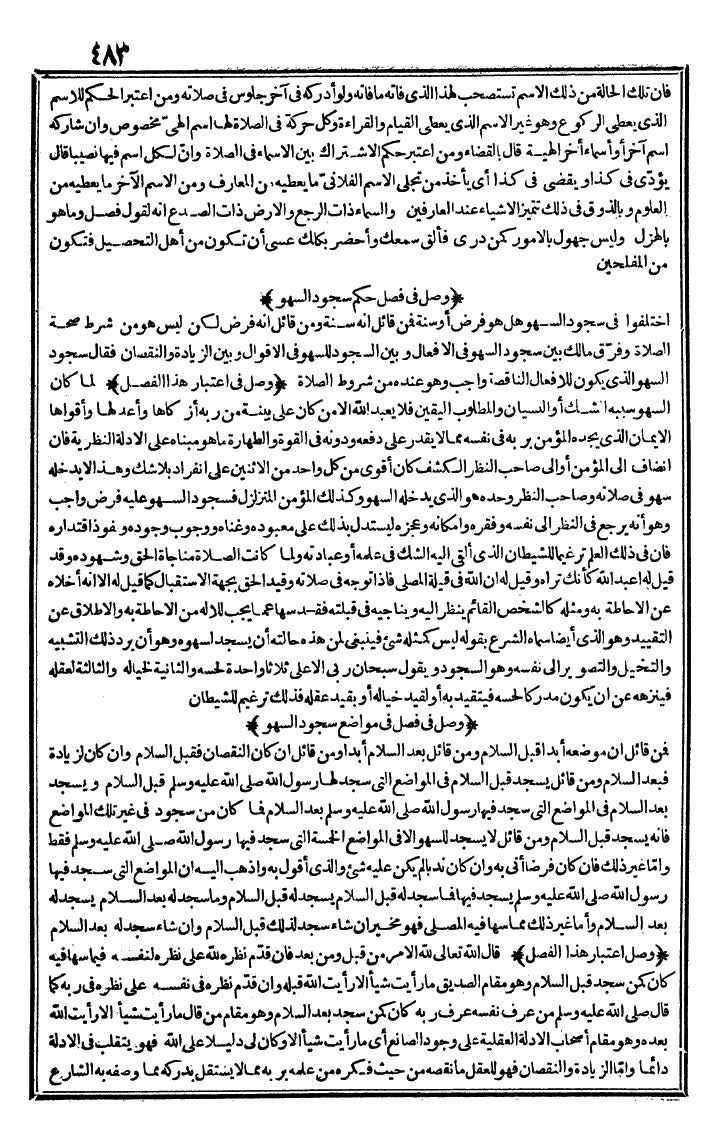 ٤٨٣
فان تلك الحالة من ذلك الاسم تستصحب لهذا الذى فاته مافاته ولو أدركه فى آخر جلوس فى صلاته ومن اعتبر الحكم للاسم
الذى يعطى الركوع وهو غير الاسم الذى يعطى القيام والقراءة وكل حركة فى الصلاة لها اسم الهىّ مخصوص وان شاركه
اسم آخر أو أسماء أخر الهية قال بالقضاء ومن اعتبر حكم الاشتراك بين الاسماء فى الصلاة وانّ لكل اسم فيها نصيبا قال
يؤدّى فى كذا ويقضى فى كذا أى يأخذ من تجلى الاسم الفلانىّ ما يعطيه من المعارف ومن الاسم الآخر ما يعطيه من
العلوم وبالذوق فى ذلك تتميز الاشياء عند العارفين والسماء ذات الرجع والارض ذات الصدع انه لقول فصل وما هو
بالهزل وليس جهول بالامور كمن درى فألق سمعك وأحضر بكلك عسى أن تكون من أهل التحصيل فتكون
من المفلحين
﴿وصل فى فصل حكم سجود السهو﴾
اختلفوا فى سجود السهو هل هو فرض أو سنة فمن قائل انه سنة ومن قائل انه فرض لكن ليس هو من شرط صحة
الصلاة وفرّق مالك بين سجود السهو فى الافعال وبين السجود للسهو فى الاقوال وبين الزيادة والنقصان فقال سجود
السهو الذى يكون للافعال الناقصة واجب وهو عنده من شروط الصلاة ﴿وصل فى اعتبار هذا الفصل﴾ لما كان
السهو سببه الشك أو النسيان والمطلوب اليقين فلا يعبد الله الا من كان على بينة من ربه أزكاها وأعدلها وأقواها
الايمان الذى يجده المؤمن بربه فى نفسه مما لا يقدر على دفعه ودونه فى القوة والطهارة ما هو مبناه على الادلة النظرية فان
انضاف الى المؤمن أو الى صاحب النظر الكشف كان أقوى من كل واحد من الاثنين على انفراد بلا شك وهذا لا يدخله
سهو فى صلاته وصاحب النظر وحده هو الذى يدخله السهو وكذلك المؤمن المتزلزل فسجود السهو عليه فرض واجب
وهو أنه يرجع فى النظر الى نفسه وفقره وامكانه وعجزه ليستدل بذلك على معبوده وغناه ووجوب وجوده ونفوذ اقتداره
فان فى ذلك العلم ترغيما للشيطان الذى ألقى اليه الشك فى علمه أو عبادته ولما كانت الصلاة مناجاة الحق وشهوده وقد
قيل له اعبد الله كأنك تراه وقيل له ان الله فى قبلة المصلى فاذا توجه فى صلاته وقيد الحق بجهة الاستقبال كما قيل له الا انه أخلاه
عن الاحاطة به ومثله كالشخص القائم ينظر اليه ويناجيه فى قبلته فقد سها عما يجب للاله من الاحاطة به والاطلاق عن
التقييد وهو الذى أيضا سماه الشرع بقوله ليس كمثله شئ فينبغى لمن هذه حالته أن يسجد لسهوه وهو أن يرد ذلك التشبيه
والتخيل والتصوير الى نفسه وهو السجود ويقول سبحان ربى الاعلى ثلاثا واحدة لحسه والثانية لخياله والثالثة لعقله
فينزهه عن ان يكون مدركا لحسه فيتقيد به أو لقيد خياله أو بقيد عقله فذلك ترغيم للشيطان
﴿وصل فى فصل فى مواضع سجود السهو﴾
فمن قائل ان موضعه أبدا قبل السلام ومن قائل بعد السلام أبدا ومن قائل ان كان النقصان فقبل السلام وان كان لزيادة
فبعد السلام ومن قائل يسجد قبل السلام فى المواضع التى سجد لها رسول الله صلى الله عليه وسلم قبل السلام ويسجد
بعد السلام فى المواضع التى سجد فيها رسول الله صلى الله عليه وسلم بعد السلام فما كان من سجود فى غير تلك المواضع
فانه يسجد قبل السلام ومن قائل لا يسجد للسهو الا فى المواضع الخمسة التى سجد فيها رسول الله صلى الله عليه وسلم فقط
وامّا غير ذلك فان كان فرضا أتى به وان كان ندبا لم يكن عليه شئ والذى أقول به واذهب اليه ان المواضع التى سجد فيها
رسول الله صلى الله عليه وسلم يسجد فيها فما سجد له قبل السلام يسجد له قبل السلام وما سجد له بعد السلام يسجد له
بعد السلام وأما غير ذلك مما سها فيه المصلى فهو مخير ان شاء سجد لذلك قبل السلام وان شاء سجد له بعد السلام
﴿وصل اعتبار هذا الفصل﴾ قال الله تعالى لله الامر من قبل ومن بعد فان قدّم نظره لله على نظره لنفسه فيما سها فيه
كان كمن سجد قبل السلام وهو مقام الصديق ما رأيت شيأ الا رأيت الله قبله وان قدّم نظره فى نفسه على نظره فى ربه كما
قال صلى الله عليه وسلم من عرف نفسه عرف ربه كان كمن سجد بعد السلام وهو مقام من قال ما رأيت شيأ الا رأيت الله
بعده وهو مقام أصحاب الادلة العقلية على وجود الصانع أى ما رأيت شيأ الا وكان لى دليلا على الله فهو يتقلب فى الادلة
دائما وامّا الزيادة والنقصان فهو للعقل ما نقصه من حيث فكره من علمه بربه مما لا يستقل بدركه مما وصفه به الشارع